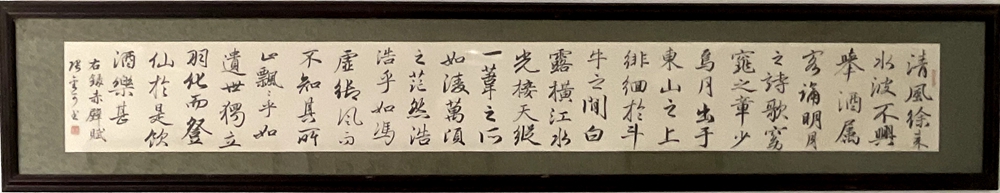 清風徐来
水波不興
舉酒属
客誦明月
之詩歌窈
窕之章少
焉月出于
東山之上
徘徊於斗
牛之間白
露橫江水
光接天縱
一葦之所
如淩萬頃
之茫然浩
浩乎如馮
虛御風而
不知其所
止飄々乎如
遺世獨立
羽化而登
仙於是飲
酒樂甚
右錄赤壁賦